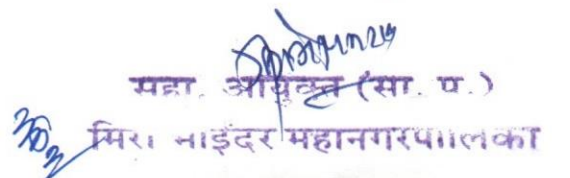 सहा. आयुक्त (सा. प.)
मिरा भाईंदर महानगरपालिका